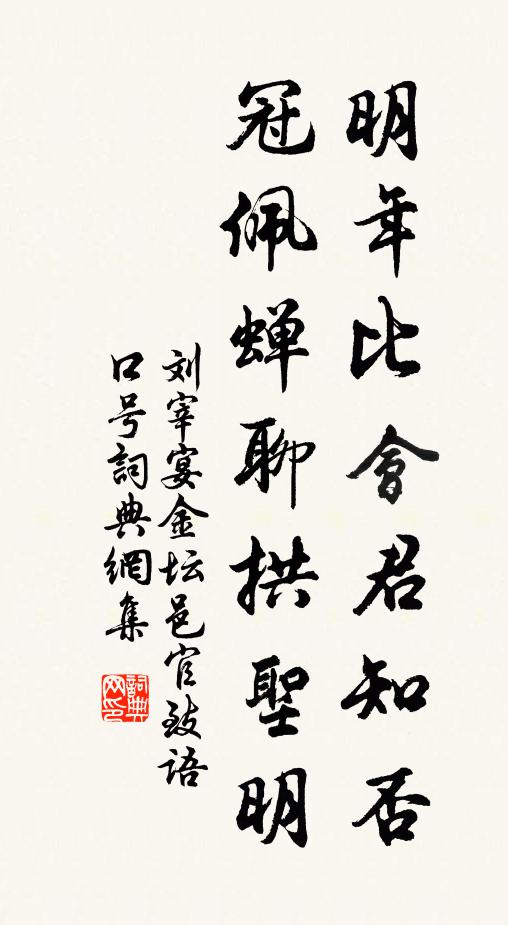 明年比會君知否
冠佩蝉聊拱聖明
刘宰宴金坛邑官致语
口号詞典網集
詞典网印